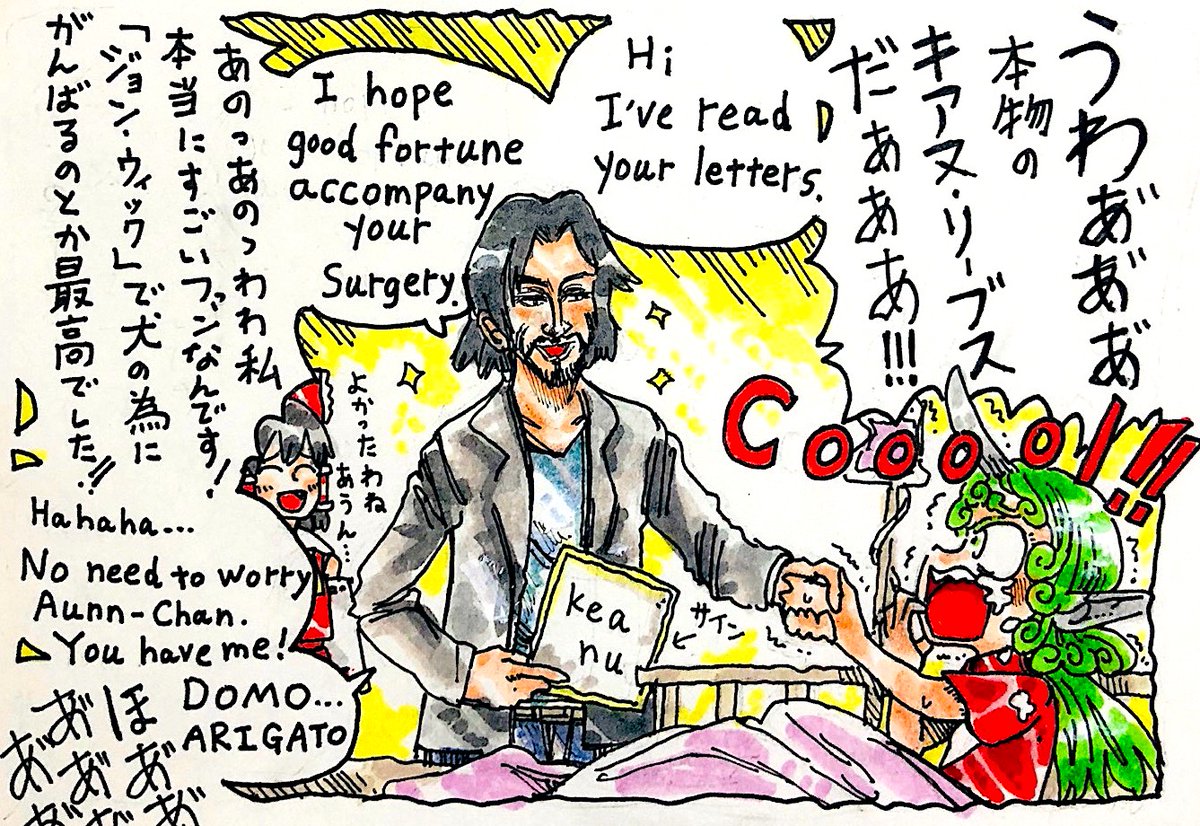 うわあ゛あ゛あ゛
本物の
キアヌ・リーブス
だぁあああ!!!
Hi
I've read
your letters.
I hope
good fortune
accompany
your
Surgery.
Cooool!!
あのっあのっわわ私
本当にすごいファンなんです!
「ジョン・ウィック」で犬の為に
がんばるのとか最高でした!!
よかったわね
あうん…
kea
nu
サイン
Hahaha...
No need to worry
Aunn-Chan.
You have me!
DOMO...
ARIGATO
ほあ゛あ゛
あ゛あ゛あ゛
あ゛あ゛